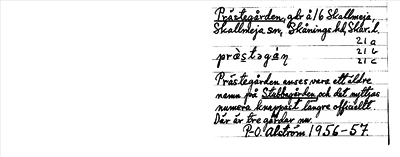 Prästegården, gdr å 1/6 Skallmeja,
Skallmeja sn, Skånings hd, Skar. l.
21 a
pràstəgáṇ 21 b
21 c
Prästegården anses vara ett äldre
namn på Stabbagården och det nyttjas
numera knappast längre officiellt.
Där är tre gårdar nu.
P-O. Alström 1956-57.